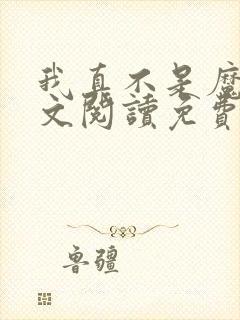 我真不是魔
文閱讀免費
魯疆